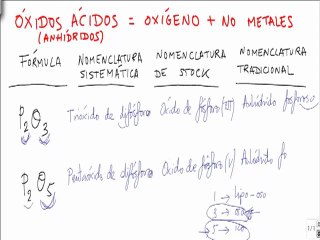 ÓXIDOS ÁCIDOS = OXÍGENO + NO METALES
(ANHÍDRIDOS)
FÓRMULA NOMENCLATURA SISTEMÁTICA NOMENCLATURA DE STOCK NOMENCLATURA TRADICIONAL
P2O3 Trióxido de difósforo Óxido de fósforo (III) Anhídrido fosforoso
P2O5 Pentaóxido de difósforo Óxido de fósforo (V) Anhídrido fo
1 → hipo-oso
3 → oso
5 → ico